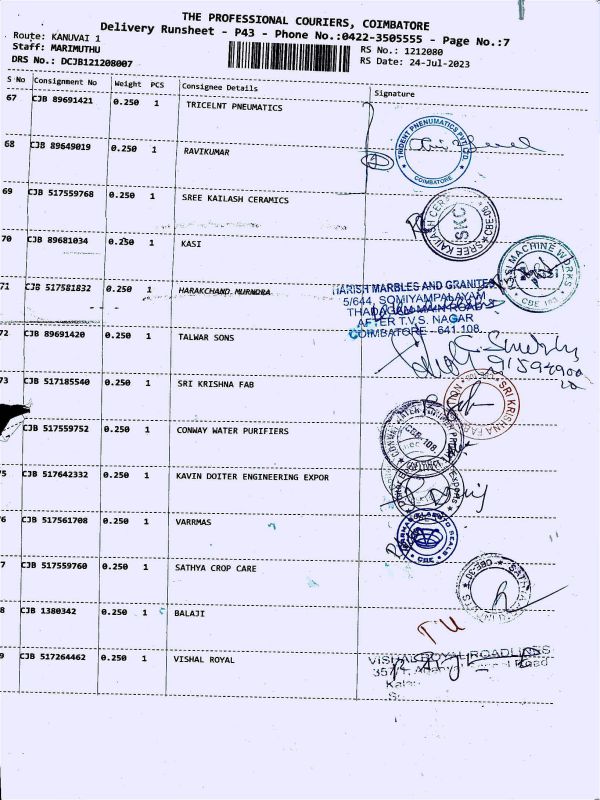 THE PROFESSIONAL COURIERS, COIMBATORE
Delivery Runsheet - P43 - Phone No.:0422-3505555 - Page No.:7
Route: KANUVAI 1
Staff: MARIMUTHU
DRS No.: DCJB121208007
RS No.: 1212080
RS Date: 24-Jul-2023
S No Consignment No Weight PCS Consignee Details Signature
67 CJB 89691421 0.250 1 TRICELNT PNEUMATICS
TRIDENT PNEUMATICS PVT LTD.
COIMBATORE
68 CJB 89649019 0.250 1 RAVIKUMAR
69 CJB 517559768 0.250 1 SREE KAILASH CERAMICS
SKC
70 CJB 89681034 0.250 1 KASI
MACHINE WORKS
71 CJB 517581832 0.250 1 HARAKCHAND MURNDRA
HARISH MARBLES AND GRANITES
5/644, SOMIYAMPALAYAM
THADAGAM MAIN ROAD
AFTER T.V.S. NAGAR
COIMBATORE - 641 108.
72 CJB 89691420 0.250 1 TALWAR SONS
73 CJB 517185540 0.250 1 SRI KRISHNA FAB
SRI KRISHNA
CJB 517559752 0.250 1 CONWAY WATER PURIFIERS
5 CJB 517642332 0.250 1 KAVIN DOITER ENGINEERING EXPOR
6 CJB 517561708 0.250 1 VARRMAS
CBE
7 CJB 517559760 0.250 1 SATHYA CROP CARE
8 CJB 1380342 0.250 1 BALAJI
9 CJB 517264462 0.250 1 VISHAL ROYAL
VISHAL ROYAL ROADLINES